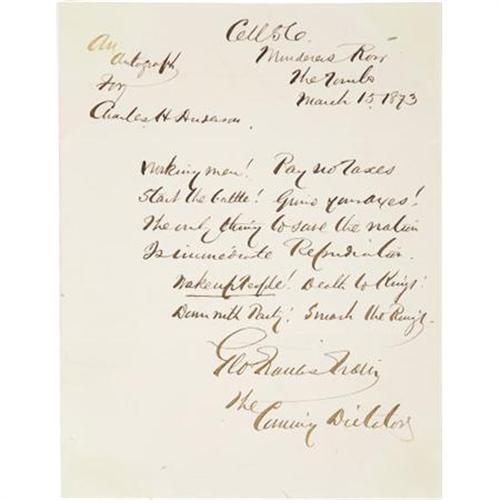 Cell 56.
Murderers Row
The Tombs
March 15, 1873
An
autograph
For
Charles H Anderson.
Working men! Pay no taxes
Start the battle! Grind your axes!
The only thing to save the nation
Is immediate Repudiation.
Wake up People! Death to Kings!
Down with Party! Smash the Rings.
Geo Francis Train
The
Coming Dictator